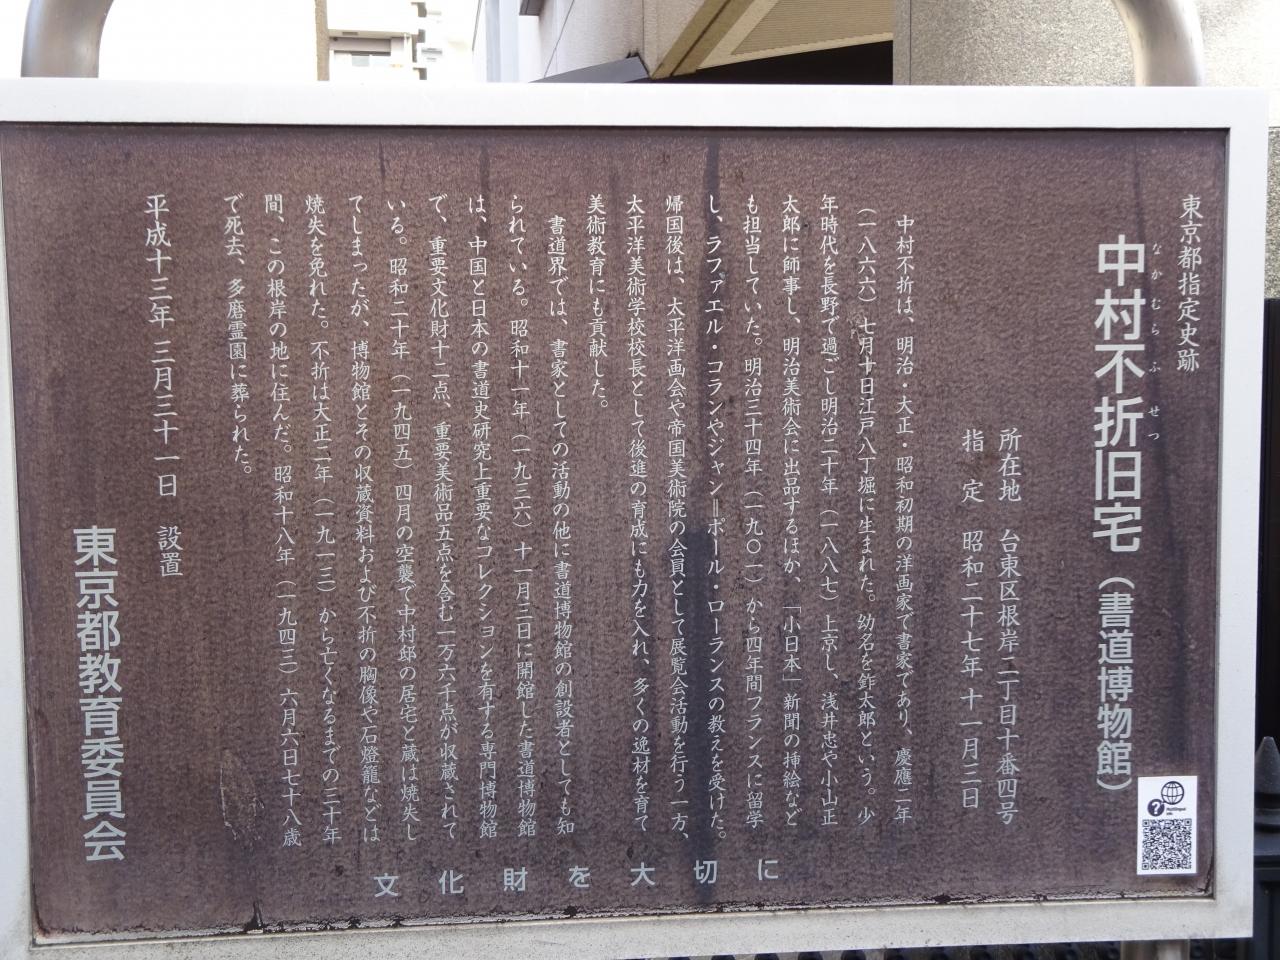 東京都指定史跡
なかむらふせつ
中村不折旧宅（書道博物館）
所在地　台東区根岸二丁目十番四号
指　定　昭和二十七年十一月三日
中村不折は、明治・大正・昭和初期の洋画家で書家であり、慶應二年
（一八六六）七月十日江戸八丁堀に生まれた。幼名を鈼太郎という。少
年時代を長野で過ごし明治二十年（一八八七）上京し、浅井忠や小山正
太郎に師事し、明治美術会に出品するほか、「小日本」新聞の挿絵など
も担当していた。明治三十四年（一九〇一）から四年間フランスに留学
し、ラファエル・コランやジャン＝ポール・ローランスの教えを受けた。
帰国後は、太平洋画会や帝国美術院の会員として展覧会活動を行う一方、
太平洋美術学校校長として後進の育成にも力を入れ、多くの逸材を育て
美術教育にも貢献した。
書道界では、書家としての活動の他に書道博物館の創設者としても知
られている。昭和十一年（一九三六）十一月三日に開館した書道博物館
は、中国と日本の書道史研究上重要なコレクションを有する専門博物館
で、重要文化財十二点、重要美術品五点を含む一万六千点が収蔵されて
いる。昭和二十年（一九四五）四月の空襲で中村邸の居宅と蔵は焼失し
てしまったが、博物館とその収蔵資料および不折の胸像や石燈籠などは
焼失を免れた。不折は大正二年（一九一三）から亡くなるまでの三十年
間、この根岸の地に住んだ。昭和十八年（一九四三）六月六日七十八歳
で死去、多磨霊園に葬られた。
平成十三年　三月三十一日　設置
東京都教育委員会
文化財を大切に
?
Multilingual